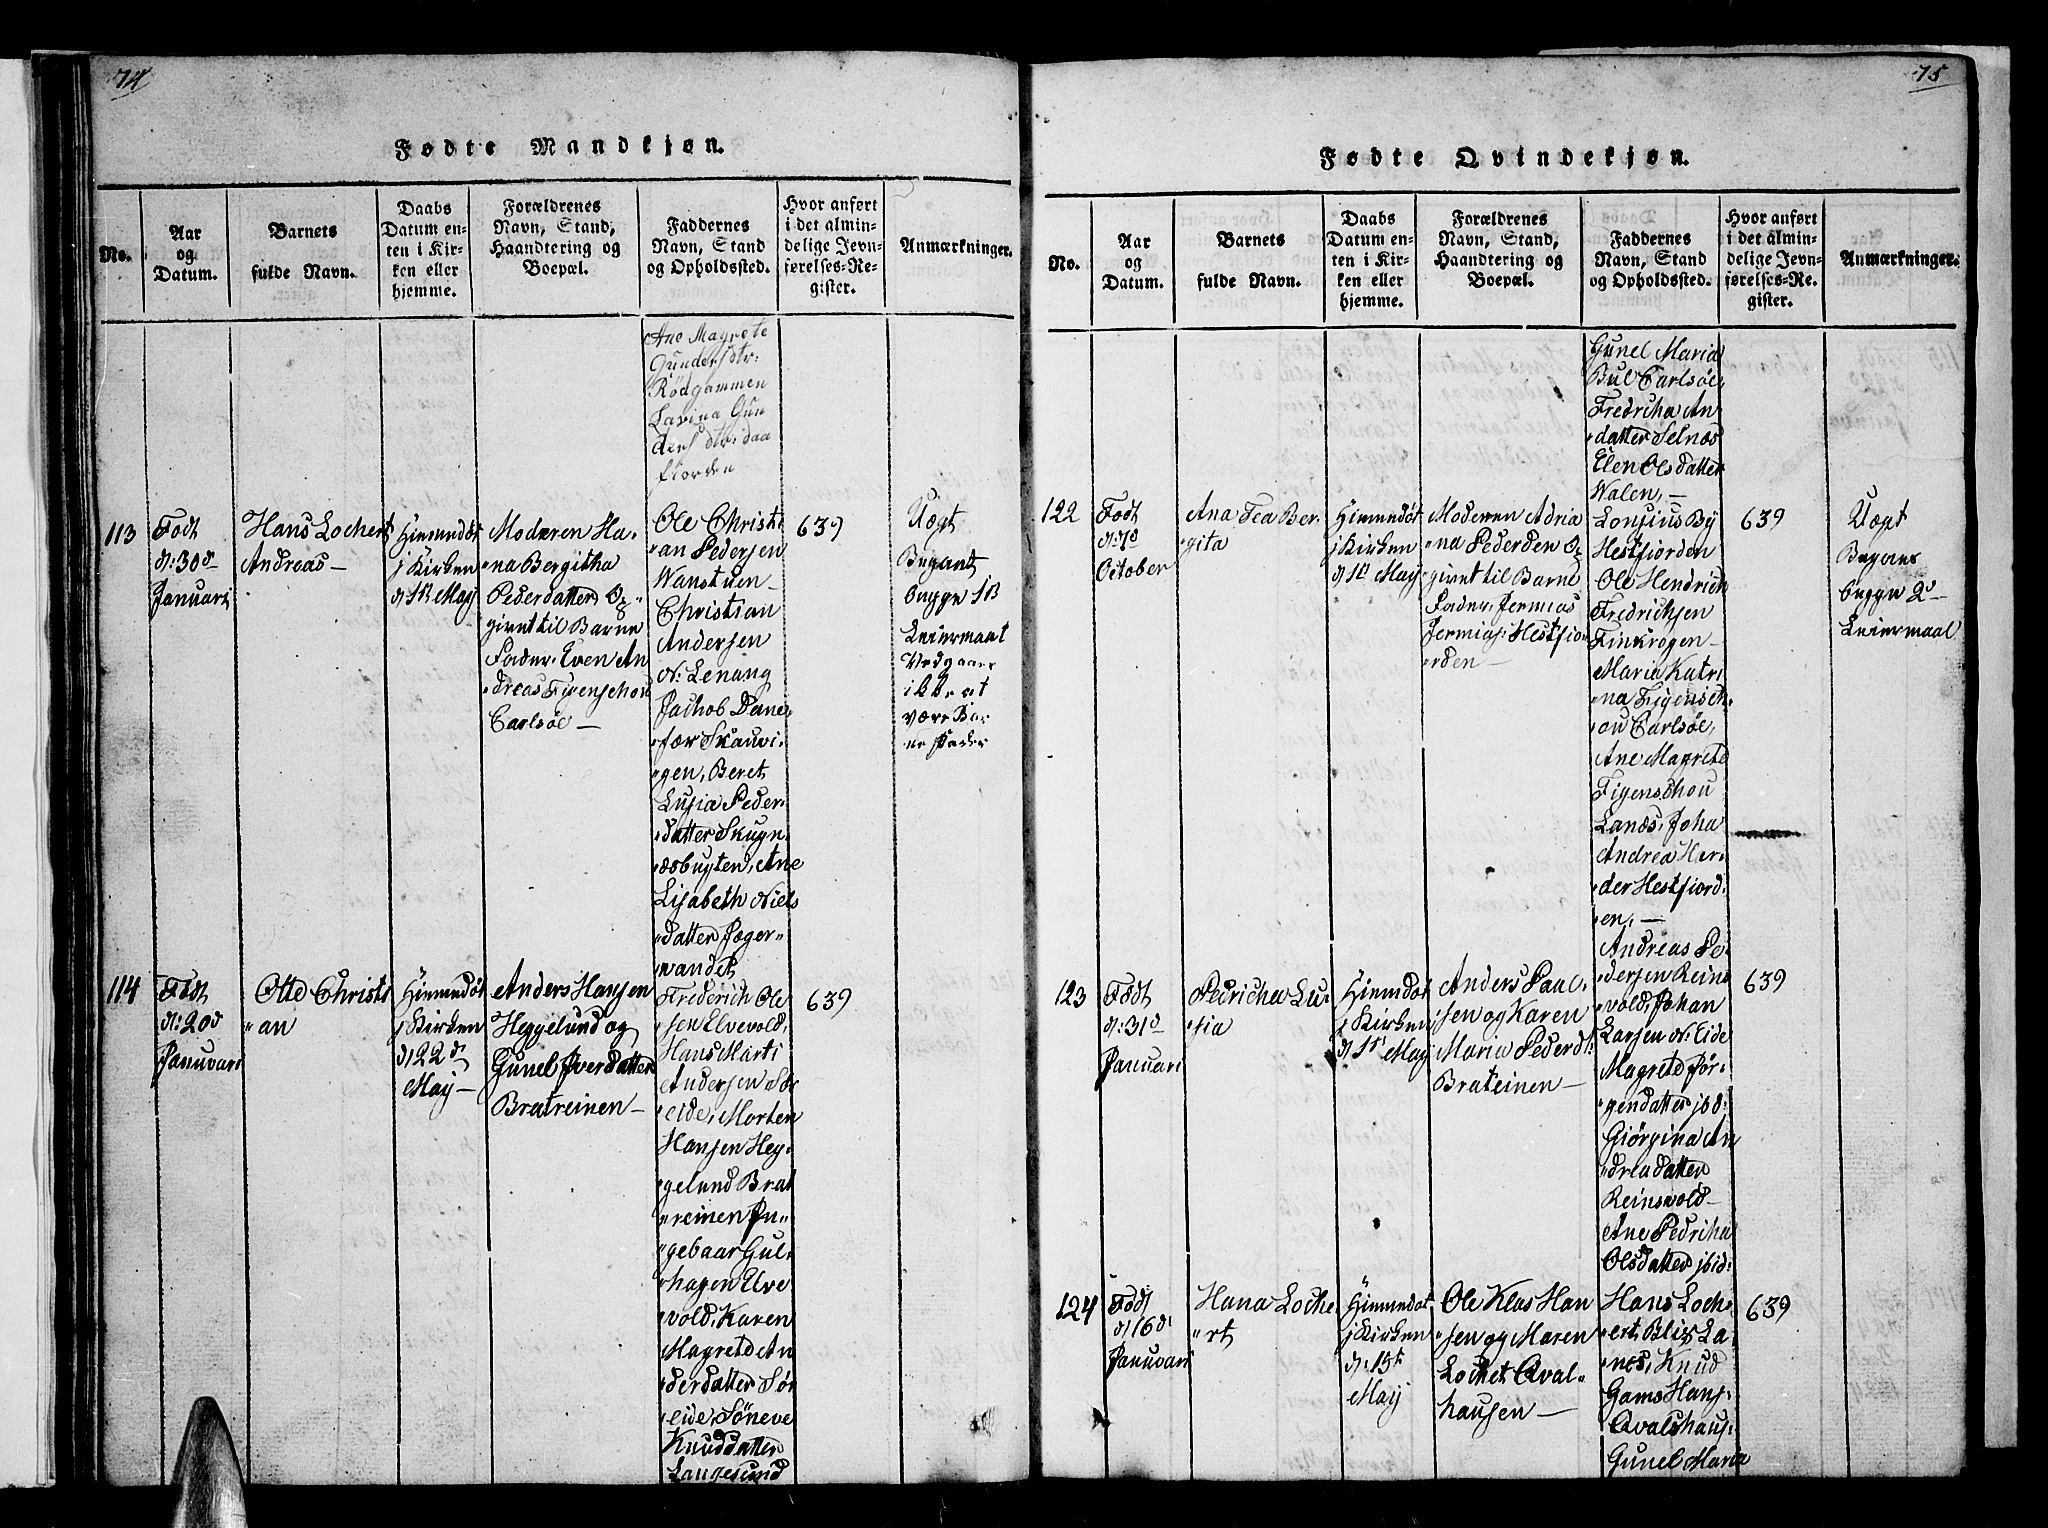 74
Fødte Mandkjøn.
No.
Aar
og
Datum.
Barnets
fulde Navn.
Daabs
Datum en-
ten i Kir-
ken eller
hjemme.
Forældrenes
Navn, Stand,
Haandtering og
Boepæl.
Faddernes
Navn, Stand
og Opholdssted.
Hvor anført
i det almin-
delige Jevn-
førelses-Re-
gister.
Anmærkninger.
Ane Magrete
Gundersdtr:
Rödgammen
Lavina Gun
dersdtr: daa
fiorden
113
Födt
d: 30d
Januari
Hans Lochert
Andreas—
Hiemmdöt
i Kirken
d 1st May
Moderen Ha-
na Bergitha
Pederdatter, O
givet til Barne
Fader: Even An
dreas Figenschou
Carlsöe—
Ole Christi
an Pedersen
Wanstuen—
Christian
Andersen
N: Lenang
Jachob Dane-
fær Skauvi-
gen, Beret
Lusia Peder-
datter Skogn-
æsbugten, Ane
Lisabeth Niels
datter Jæger-
wandet
639
Uægt
Begges 1st
Leiermaal
Vedgaaer
ikke at
være Bar
ne Fader
114
Födt
d: 20d
Januvari
Otte Christi
an
Hiemmdöt
i Kirken
d 22d
May—
Anders Hansen
Heggelund og
Gunel Iverdatter
Bratreinen—
Frederich Ole
sen Elvevold,
Hans Marti
Andersen Sör
eide, Morten
Hansen Heg-
gelund Brat
reinen In-
gebaar Gul-
hagen Elve
vold, Karen
Magrete An
derdatter Sör
eide, Söneve
Knuddatter
Langesund
639
75
Fødte Qvindekjøn.
No.
Aar
og
Datum.
Barnets
fulde Navn.
Daabs
Datum en-
ten i Kir-
ken eller
hjemme.
Forældrenes
Navn, Stand,
Haandtering og
Boepæl.
Faddernes
Navn, Stand
og Opholdssted.
Hvor anført
i det almin-
delige Jevn-
førelses-Re-
gister.
Anmærkninger.
Gunel Maria
Bul Carlsöe,
Fredricha An
datter Selnæs
Elen Olsdatter
Walen,—
122
Födt
d: 7d
October
Ana Tea Ber-
gita
Hiemmdöt
i Kirken
d 1st May
Moderen Adria
na Pederden O
givet til Barne
Fader, Jermias
Jermias: Hestfio
rden—
Lonsius By
Hestfiorden
Ole Hendrich
Fredrichsen
Finkrogen—
Maria Katri
na Figensch-
ou Carlsöe,
Ane Magrete
Figenschou
Lanes, Joha
Andrea Her-
der Hestfiord-
en,—
639
Uægt
Begges 2d
Leiermaal
123
Födt
d: 31d
Januari
Pedricha Lu-
sia
Hiemmdöt
i Kirken
d 1st May
Anders Paul-
sen og Karen
Maria Pederd:
Brateinen—
Andreas Pe-
dersen Reins
vold, Johan
Larsen N: Eide
Magrete Jör-
gendatter ibd:
Giörgina An
dreadatter
Reinsvold—
Ane Pedricha
Olsdatter ibid:
639
124
Födt
d 16d
Januvari
Hana Loche-
rt
Hiemmdöt
i Kirken
d: 15t
May
Ole Klas Han
sen og Maren
Lochet Qval-
hausen—
Hans Loch-
ert, Blix La
nes, Knud
Gams Hans:
Qvalshaus:
Gunel Maria
639